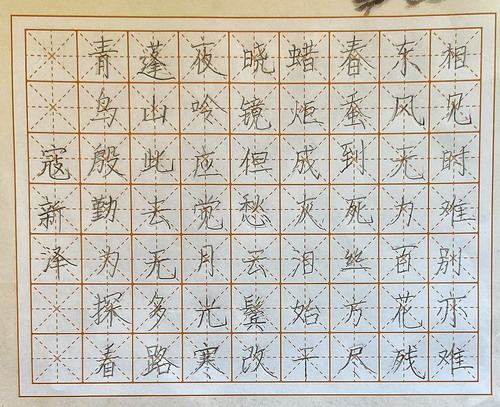 相见时难别亦难
东风无力百花残
春蚕到死丝方尽
蜡炬成灰泪始干
晓镜但愁云鬓改
夜吟应觉月光寒
蓬山此去无多路
青鸟殷勤为探看
寇新泽